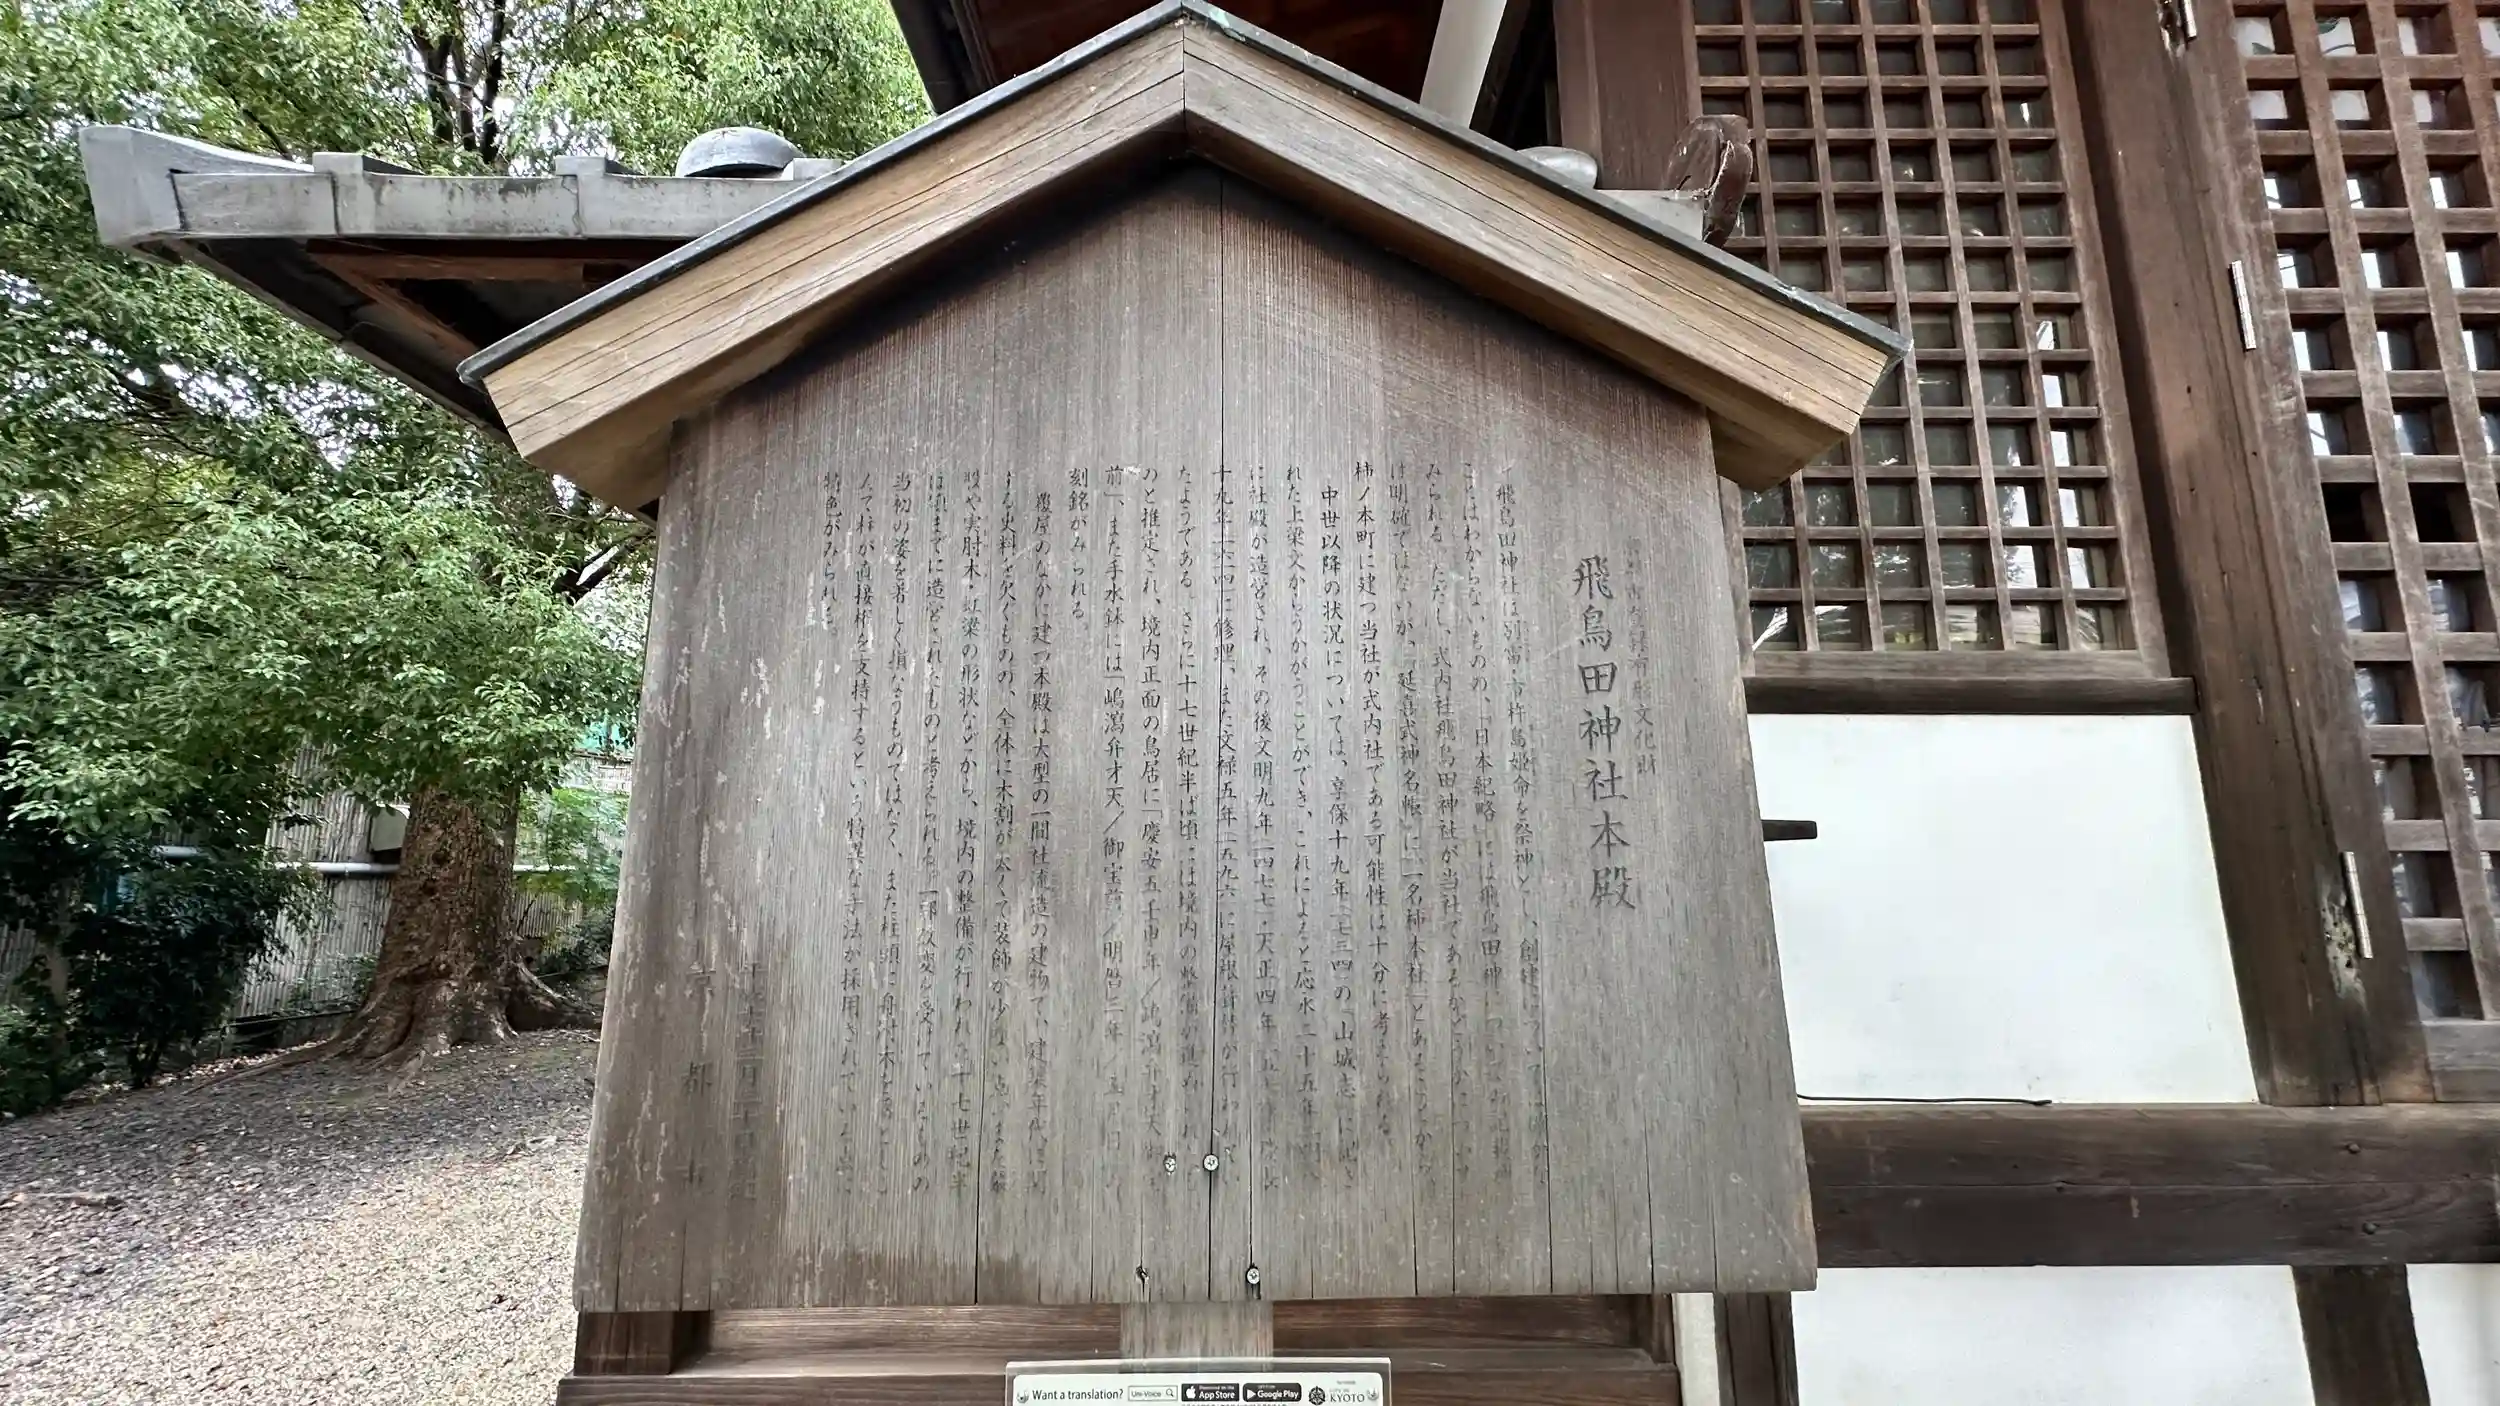 市登録有形文化財
飛鳥田神社本殿
飛鳥田神社は別雷・市杵島姫命を祭神とし、創建について
ことはわからないものの、「日本紀略」には飛鳥田神につい
みられる。ただし、式内社飛鳥田神社が当社であるかどうかについて
は明確ではないが、「延喜式神名帳」に「一名柿本社」とあることから
柿ノ本町に建つ当社が式内社である可能性は十分に考えられる。
中世以降の状況については、享保十九年(一七三四)の「山城志」に記さ
れた上梁文からうかがうことができ、これによると応永二十五年
に社殿が造営され、その後文明九年(一四七七)・天正四年
十九年(一六一四)に修理、また文禄五年(一五九六)に屋根葺替が行われてい
たようである。さらに十七世紀半ば頃には境内の整備が進められ
のと推定され、境内正面の鳥居に「慶安五壬申年/嶋瀉弁才天
前」、また手水鉢には「嶋瀉弁才天/御宝前/明暦三年/五月
刻銘がみられる。
覆屋のなかに建つ本殿は大型の一間社流造の建物で、建築年代に関
する史料を欠くものの、全体に木割が太くて装飾が少ない点、また蟇
股や実肘木・虹梁の形状などから、境内の整備が行われた十七世紀半
ば頃までに造営されたものと考えられる。一部改変を受けているものの
当初の姿を著しく損なうものではなく、また柱頭に舟肘木を
て柱が直接桁を支持するという特異な手法が採用されている点に
特色がみられる。
京都市
Want a translation?
Uni-Voice
App Store
Google Play
KYOTO